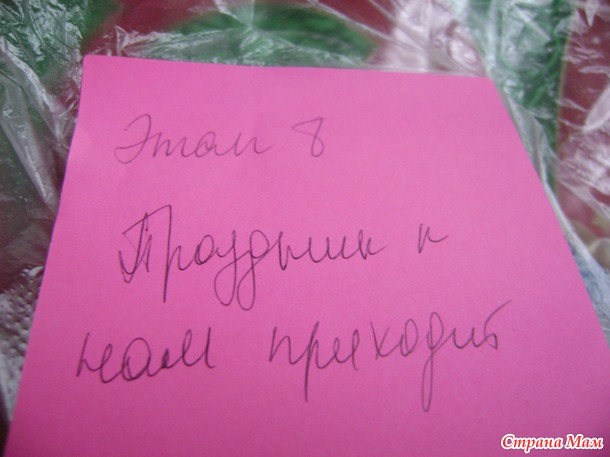 Этап 8
Праздник к
нам приходит
Страна Мам